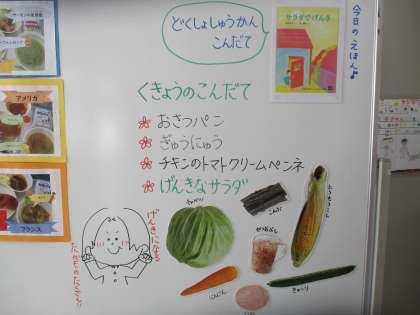 どくしょしゅうかん
こんだて
今日のえほん♪
サラダでげんき
くきょうのこんだて
おさつパン
ぎゅうにゅう
チキンのトマトクリームペンネ
げんきなサラダ
アメリカ
フランス
キャベツ
こんぶ
とうもろこし
かつおぶし
にんじん
きゅうり
げんきになる